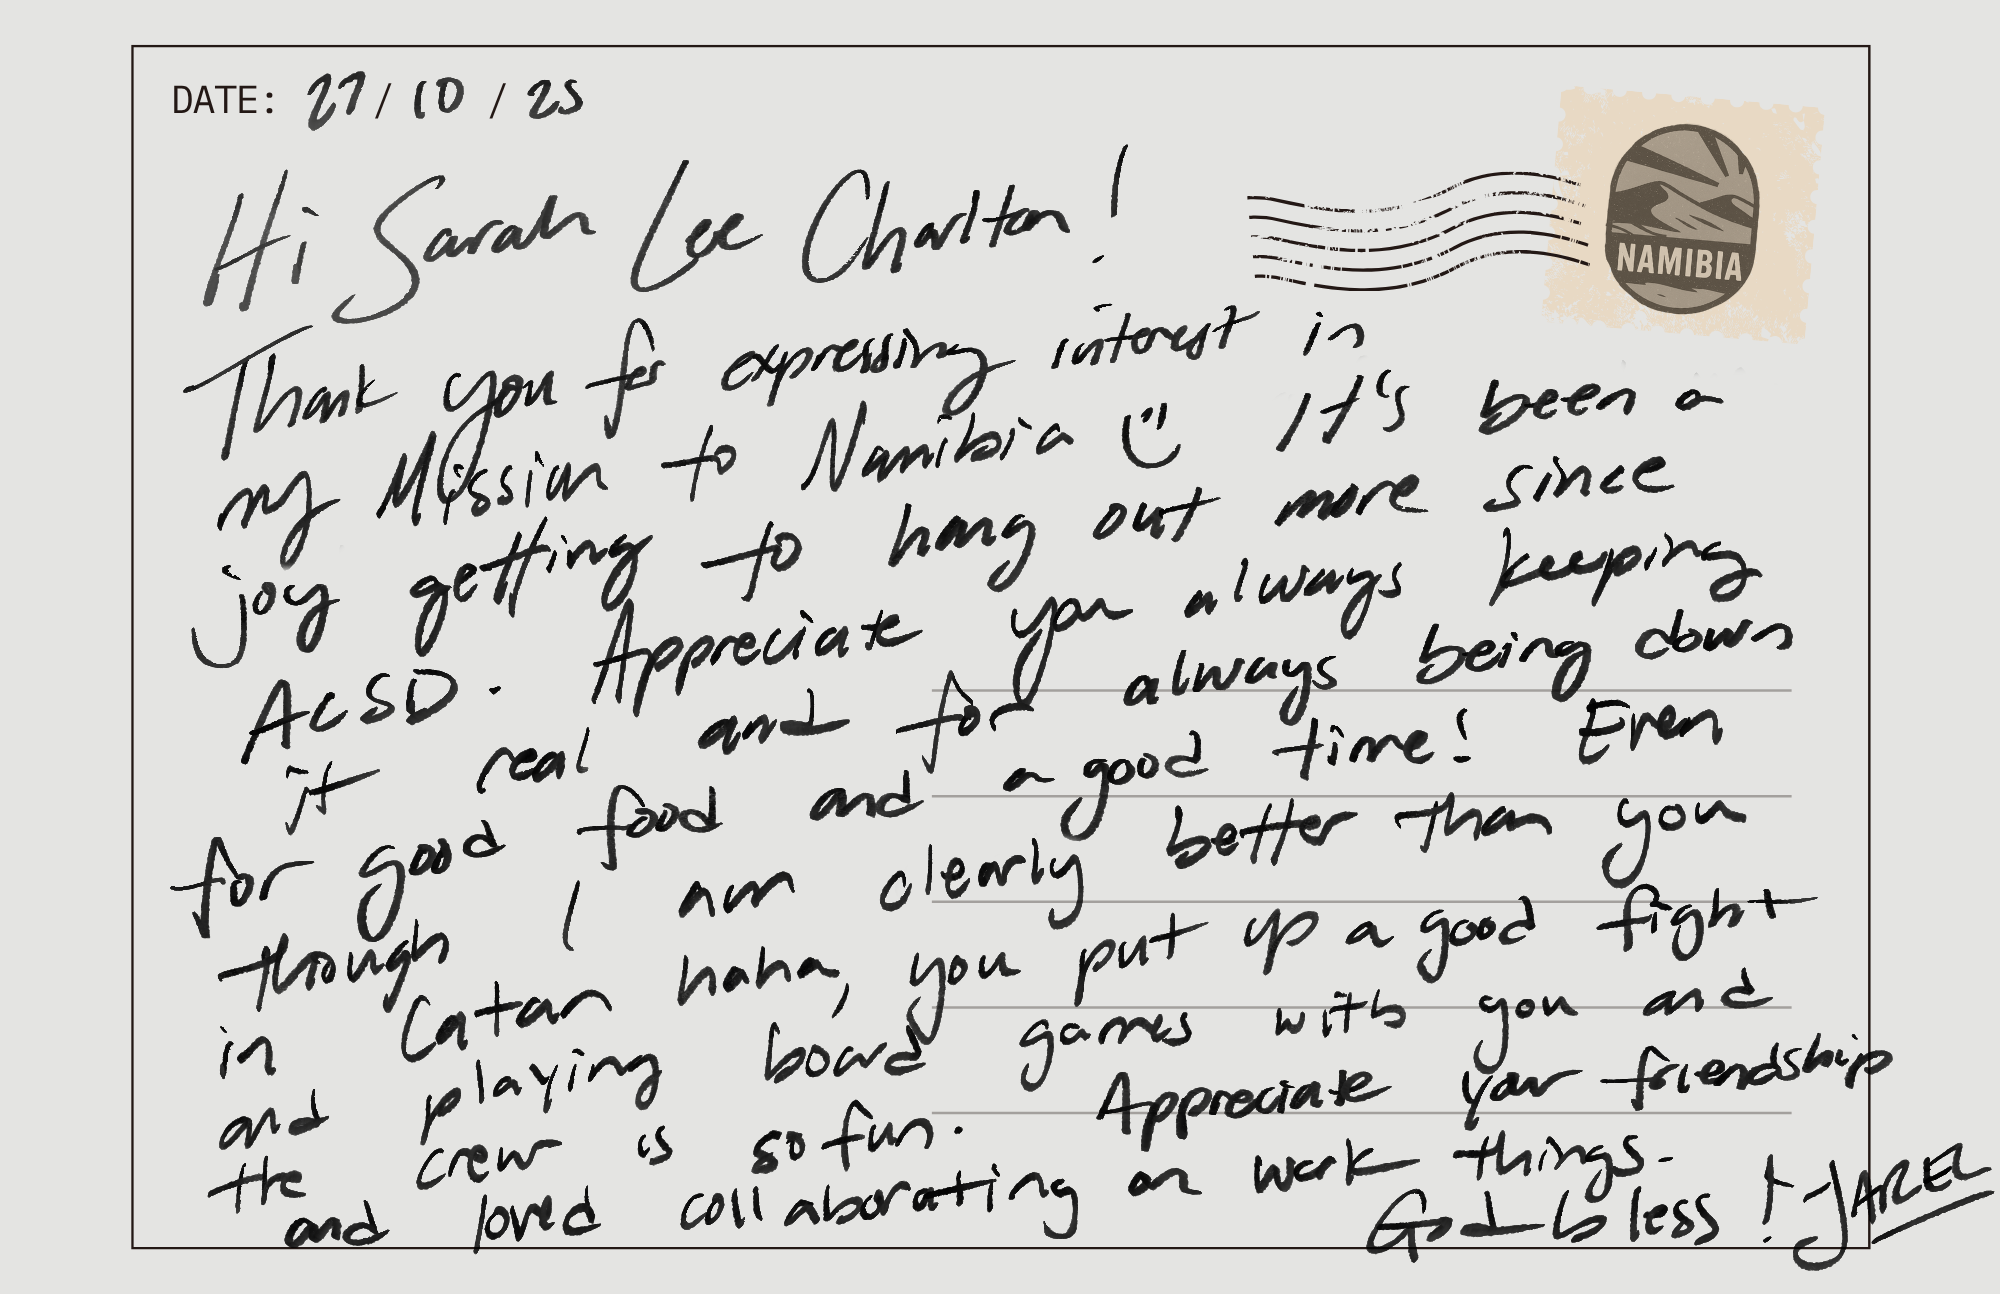 DATE: 27 / 10 / 25
NAMIBIA
Hi Sarah Lee Charlton!
Thank you for expressing interest in
my Mission to Namibia :) It's been a
joy getting to hang out more since
ACSD. Appreciate you always keeping
it real and for always being down
for good food and a good time! Even
though I am clearly better than you
in Catan haha, you put up a good fight
and playing board games with you and
the crew is so fun. Appreciate your friendship
and loved collaborating on work things.
God bless! -JAREL